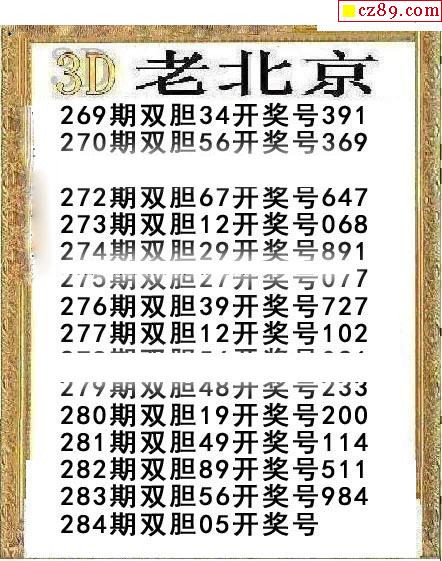 cz89.com
3D 老北京
269期双胆34开奖号391
270期双胆56开奖号369
272期双胆67开奖号647
273期双胆12开奖号068
274期双胆29开奖号891
275期双胆27开奖号077
276期双胆39开奖号727
277期双胆12开奖号102
279期双胆48开奖号233
280期双胆19开奖号200
281期双胆49开奖号114
282期双胆89开奖号511
283期双胆56开奖号984
284期双胆05开奖号